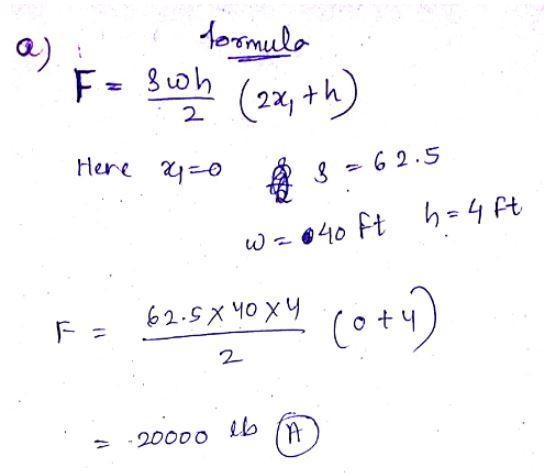 a) formula
F = swh/2 (2x₁ + h)
Here x₁=0 s = 62.5
w = 40 ft h = 4 ft
F = 62.5 x 40 x 4/2 (0 + 4)
= 20000 lb (A)